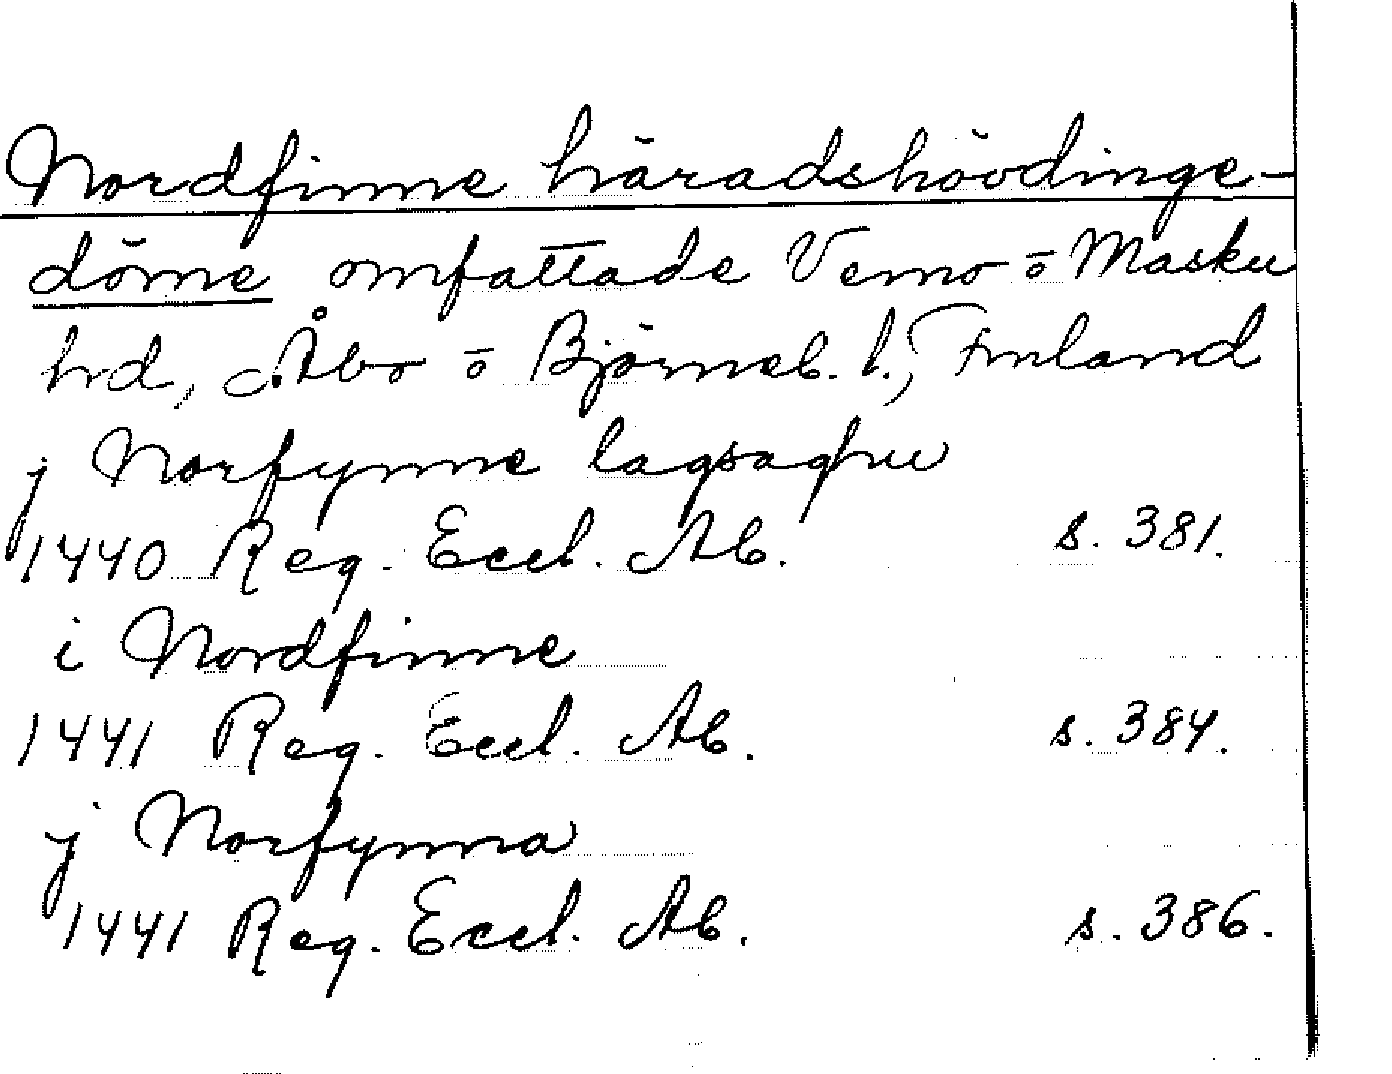 Nordfinne häradshövdinge-
döme omfattade Vemo o Masku
hd, Åbo o Björneb. l., Finland
j Norfynne lagsaghu
1440 Reg. Eccl. Ab. s. 381.
i Nordfinne
1441 Reg. Eccl. Ab. s. 384.
j Norfynna
1441 Reg. Eccl. Ab. s. 386.